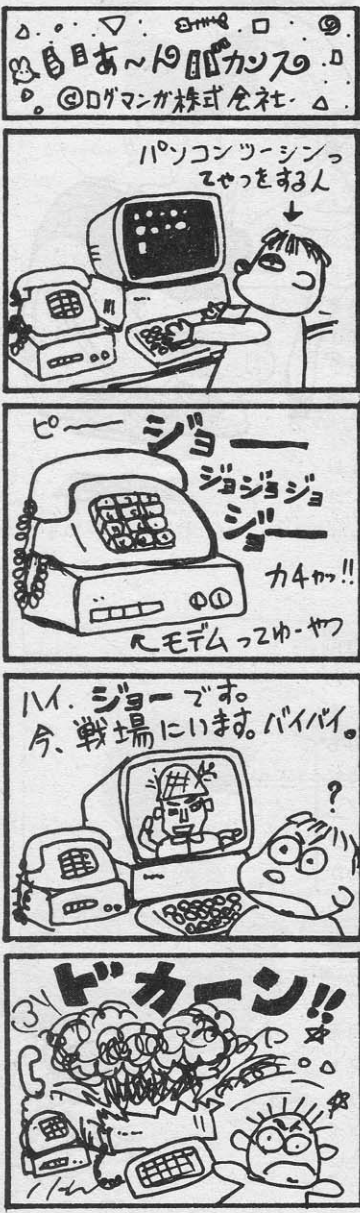 あ〜んバカンス
©ログマンガ株式会社.
パソコンツーシンっ
てやつをする人
ピ――
ジョー
ジョジョジョ
ジョー
カチャッ!!
モデムってゆーやつ
ハイ.ジョーです。
今、戦場にいます。バイバイ。
?
ドカーン!!